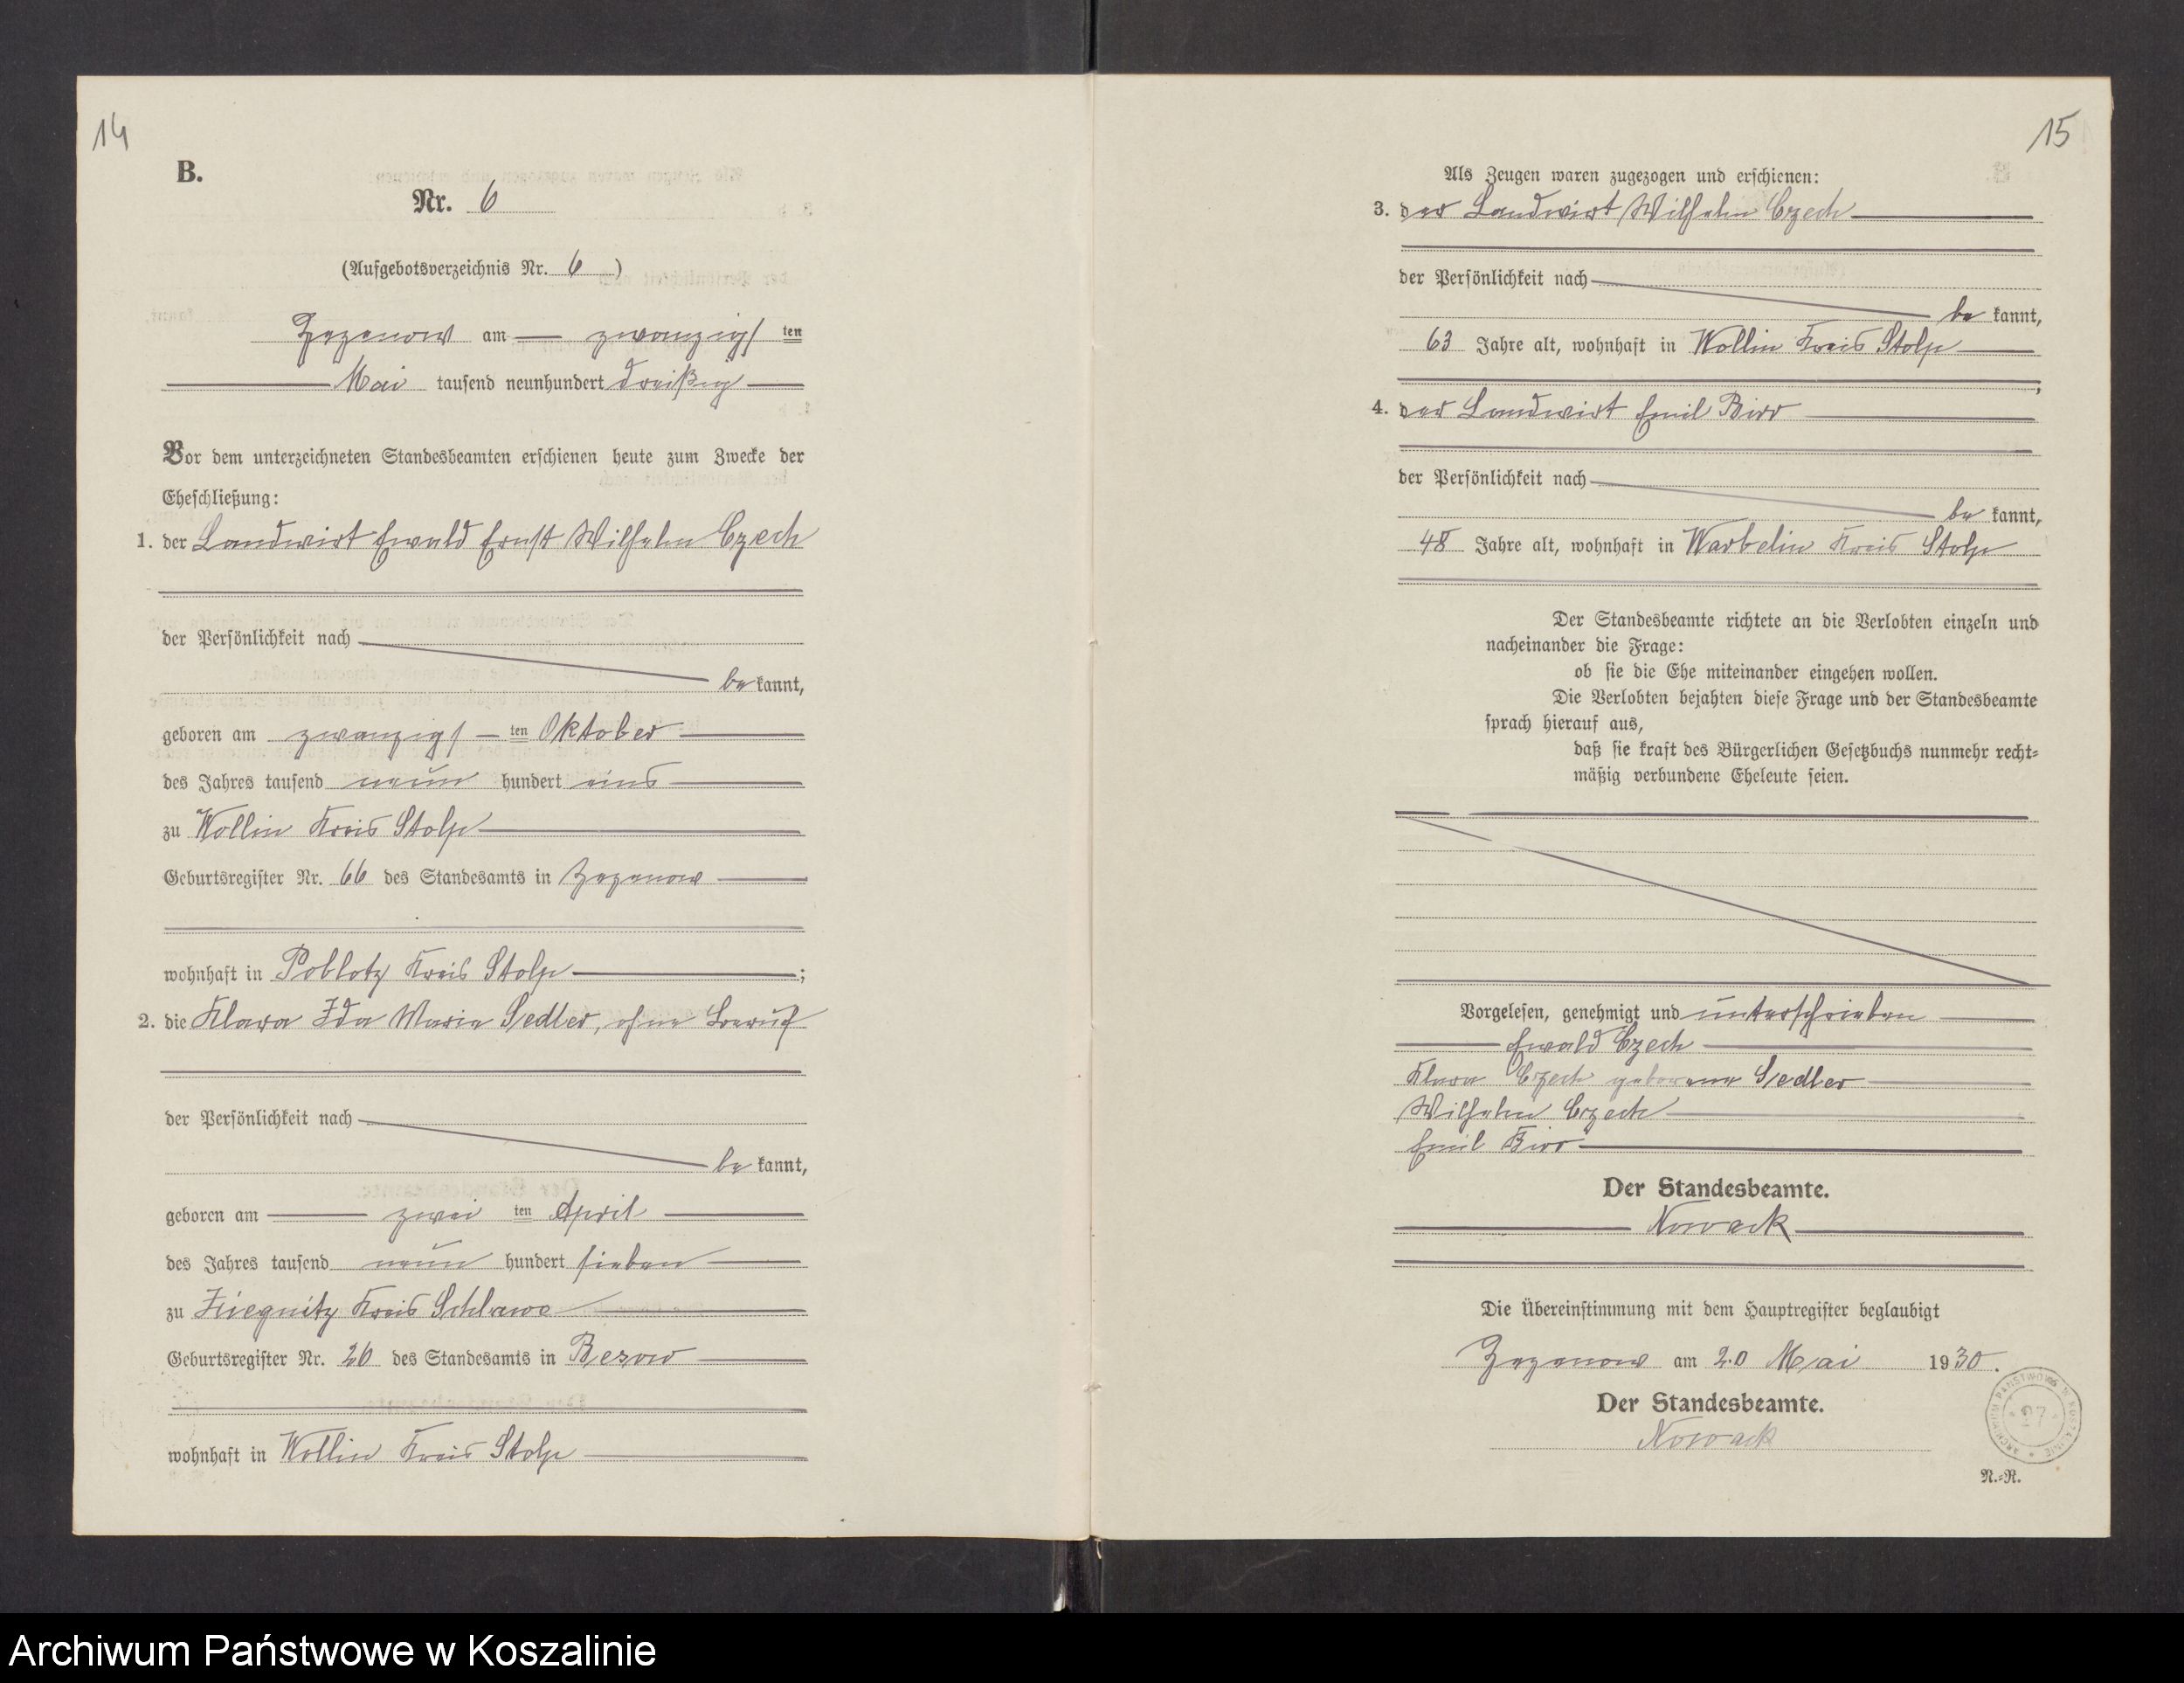 14
B.
Nr. 6
(Aufgebotsverzeichnis Nr. 6)
Zezenow am zwanzigsten
Mai tausend neunhundert dreißig
Vor dem unterzeichneten Standesbeamten erschienen heute zum Zwecke der
Eheschließung:
1. der Landwirt Ewald Ernst Wilhelm Czech
der Persönlichkeit nach
bekannt,
geboren am zwanzigsten Oktober
des Jahres tausend neun hundert eins
zu Wollin Kreis Stolp
Geburtsregister Nr. 66 des Standesamts in Zezenow
wohnhaft in Poblotz Kreis Stolp;
2. die Klara Ida Maria Sedler, ohne Beruf
der Persönlichkeit nach
bekannt,
geboren am zweiten April
des Jahres tausend neun hundert sieben
zu Ziegnitz Kreis Schlawe
Geburtsregister Nr. 20 des Standesamts in Besow
wohnhaft in Wollin Kreis Stolp
15
Als Zeugen waren zugezogen und erschienen:
3. der Landwirt Wilhelm Czech
der Persönlichkeit nach
bekannt,
63 Jahre alt, wohnhaft in Wollin Kreis Stolp;
4. der Landwirt Emil Birr
der Persönlichkeit nach
bekannt,
48 Jahre alt, wohnhaft in Warbelin Kreis Stolp
Der Standesbeamte richtete an die Verlobten einzeln und
nacheinander die Frage:
ob sie die Ehe miteinander eingehen wollen.
Die Verlobten bejahten diese Frage und der Standesbeamte
sprach hierauf aus,
daß sie kraft des Bürgerlichen Gesetzbuchs nunmehr recht-
mäßig verbundene Eheleute seien.
Vorgelesen, genehmigt und unterschrieben
Ewald Czech
Klara Czech geborene Sedler
Wilhelm Czech
Emil Birr
Der Standesbeamte.
Nowack
Die Übereinstimmung mit dem Hauptregister beglaubigt
Zezenow am 20 Mai 1930.
Der Standesbeamte.
Nowack
ARCHIWUM PAŃSTWOWE W KOSZALINIE
N.-R.
Archiwum Państwowe w Koszalinie